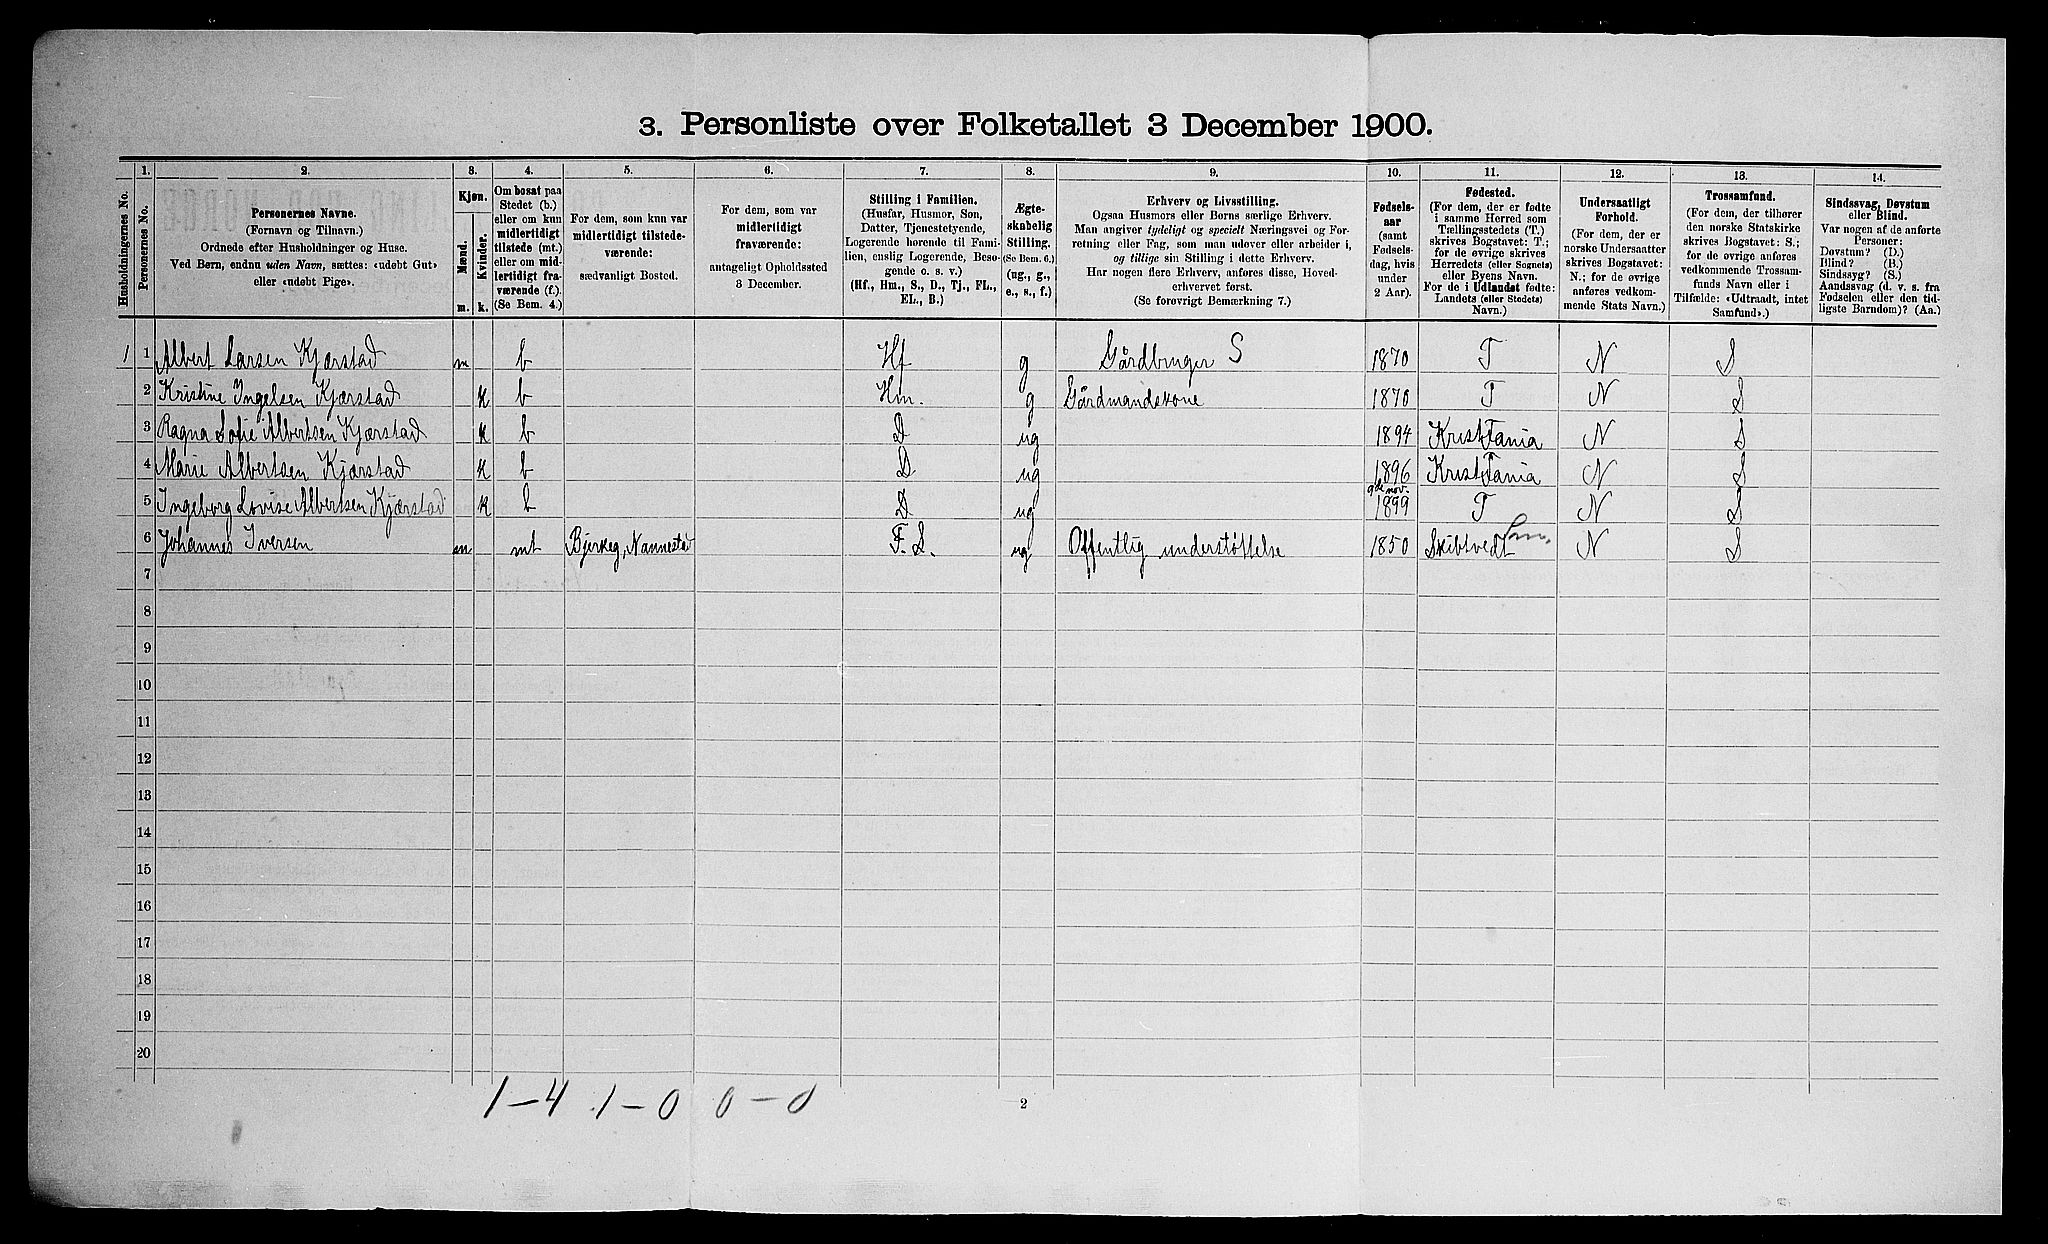 3. Personliste over Folketallet 3 December 1900.
1. 2. 3. 4. 5. 6. 7. 8. 9. 10. 11. 12. 13. 14.
Husholdningernes No.
Personernes No.
Personernes Navne.
(Fornavn og Tilnavn.)
Ordnede efter Husholdninger og Huse.
Ved Børn, endnu uden Navn, sættes: «udøbt Gut»
eller «udøbt Pige».
Kjøn.
Mænd.
Kvinder.
m. k.
Om bosat paa
Stedet (b.)
eller om kun
midlertidigt
tilstede (mt.)
eller om mid-
lertidigt fra-
værende (f.)
(Se Bem. 4.)
For dem, som kun var
midlertidigt tilstede-
værende:
sædvanligt Bosted.
For dem, som var
midlertidigt
fraværende:
antageligt Opholdssted
3 December.
Stilling i Familien.
(Husfar, Husmor, Søn,
Datter, Tjenestetyende,
Logerende hørende til Fami-
lien, enslig Logerende, Besø-
gende o. s. v.)
(Hf., Hm., S., D., Tj., FL.,
EL., B.)
Ægte-
skabelig
Stilling.
(Se Bem. 6.)
(ug., g.,
e., s., f.)
Erhverv og Livsstilling.
Ogsaa Husmors eller Børns særlige Erhverv.
Man angiver tydeligt og specielt Næringsvei og For-
retning eller Fag, som man udøver eller arbeider i,
og tillige sin Stilling i dette Erhverv.
Har nogen flere Erhverv, anføres disse, Hoved-
erhvervet først.
(Se forøvrigt Bemærkning 7.)
Fødsels-
aar
(samt
Fødsels-
dag, hvis
under
2 Aar).
Fødested.
(For dem, der er fødte
i samme Herred som
Tællingsstedets (T.)
skrives Bogstavet: T.;
for de øvrige skrives
Herredets (eller Sognets)
eller Byens Navn.
For de i Udlandet fødte:
Landets (eller Stedets)
Navn.)
Undersaatligt
Forhold.
(For dem, der er
norske Undersaatter
skrives Bogstavet:
N.; for de øvrige
anføres vedkom-
mende Stats Navn.)
Trossamfund.
(For dem, der tilhører
den norske Statskirke
skrives Bogstavet: S.;
for de øvrige anføres
vedkommende Trossam-
funds Navn eller i
Tilfælde: «Udtraadt, intet
Samfund».)
Sindssvag, Døvstum
eller Blind.
Var nogen af de anførte
Personer:
Døvstum? (D.)
Blind? (B.)
Sindssyg? (S.)
Aandssvag (d. v. s. fra
Fødselen eller den tid-
ligste Barndom)? (Aa.)
1 1 Albert Larsen Kjærstad m b Hf g Gårdbruger S 1870 T N S
2 Kristine Ingelsen Kjærstad k b Hm. g Gårdmandskone 1870 T N S
3 Ragna Sofie Albertsen Kjærstad k b D ug 1894 Kristiania N S
4 Marie Albertsen Kjærstad k b D ug 1896 Kristiania N S
5 Ingeborg Lovise Albertsen Kjærstad k b D ug 9de nov. 1899 T N S
6 Johannes Iversen m mt Bjerkeg, Nannestad F. L. ug Offentlig understøttelse 1850 Skibtvedt Sm. N S
7
8
9
10
11
12
13
14
15
16
17
18
19
20
1-4 1-0 0-0
2